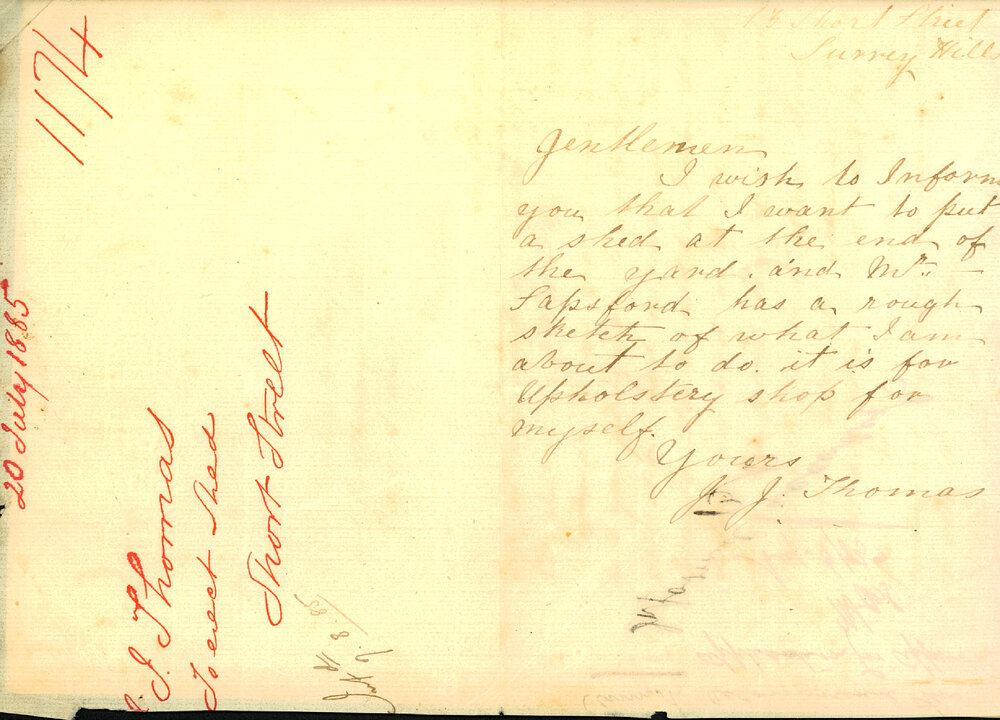 117/4
20 July 1885
J. Thomas
To erect Shed
Short Street
Short Street
Surrey Hills
Gentlemen
I wish to Inform
you that I want to put
a shed at the end of
the yard. and Mr. –
Sapsford has a rough
sketch of what I am
about to do. it is for
Upholstery shop for
myself.
Yours
J. Thomas